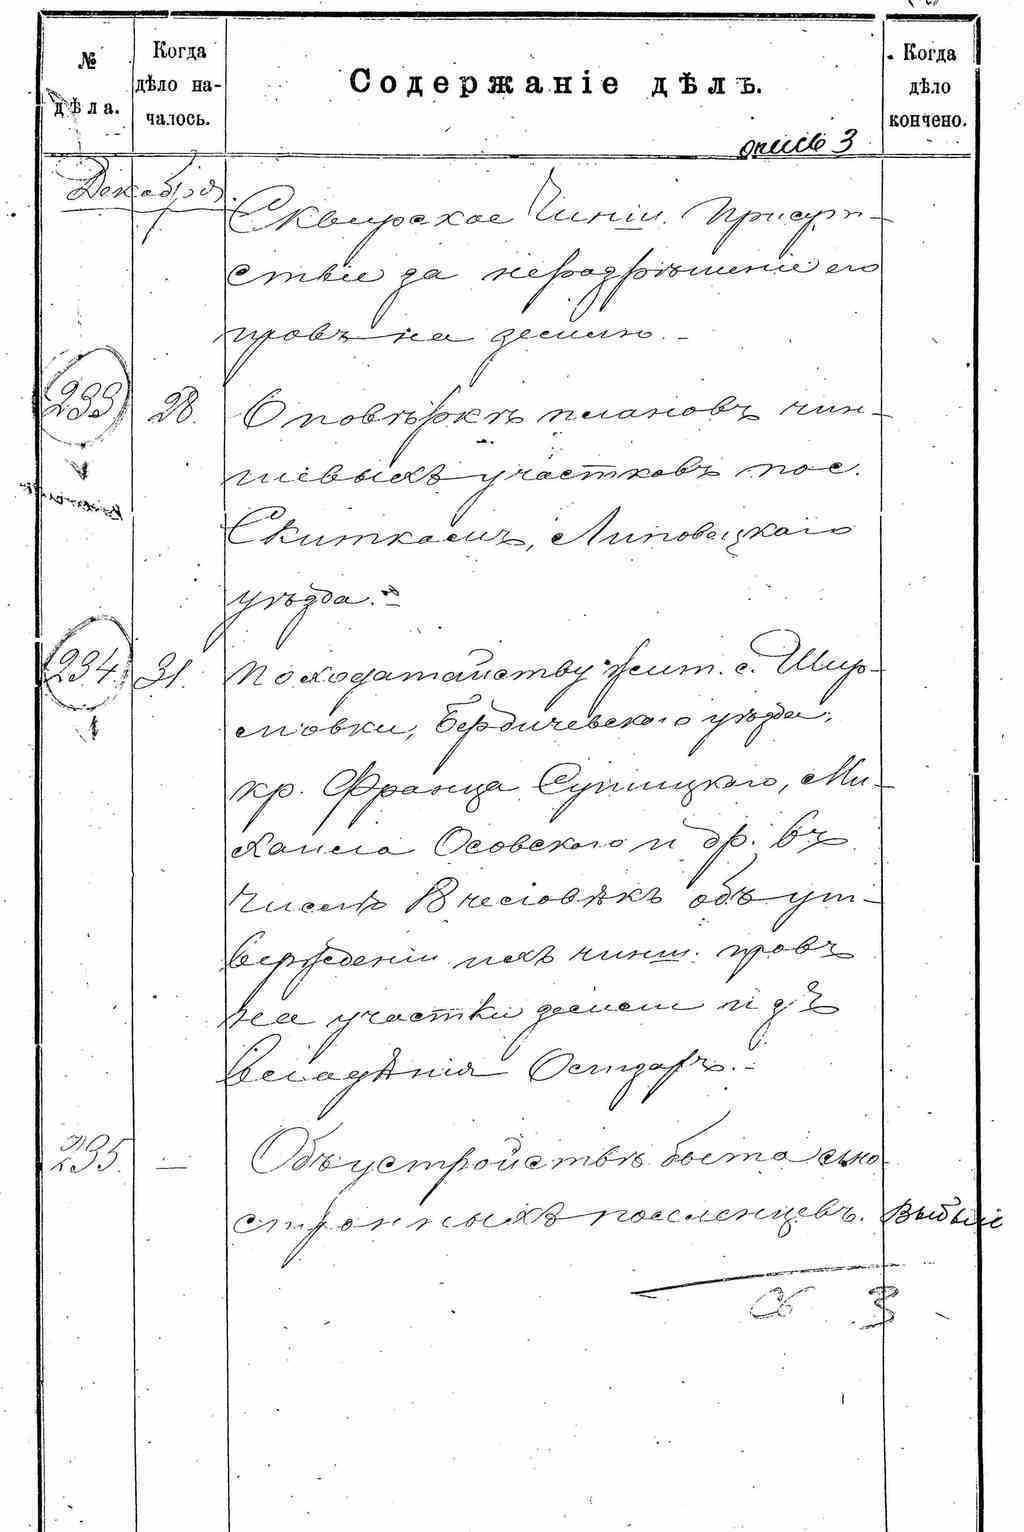 № дѣла.
Когда дѣло на-
чалось.
Содержаніе дѣлъ.
Когда дѣло кончено.
опись 3
Декабря
Сквирское Чинш. Присут-
ствіе за неразрѣшеніе его
правъ на землю.
233 28. О повѣркѣ плановъ чин-
шевыхъ участковъ пос.
Скиткахъ, Липовецкаго
уѣзда.
234. 31. По ходатайству жит. с. Шир-
мовки, Бердичевскаго уѣзда,
кр. Франца Сулицкаго, Ми-
хаила Осовскаго и др. въ
числѣ 18 человѣкъ объ ут-
вержденіи ихъ чинш. правъ
на участки земли изъ
владѣнія
235. — Объ устройствѣ быта
поселенцевъ. Выбыло
3